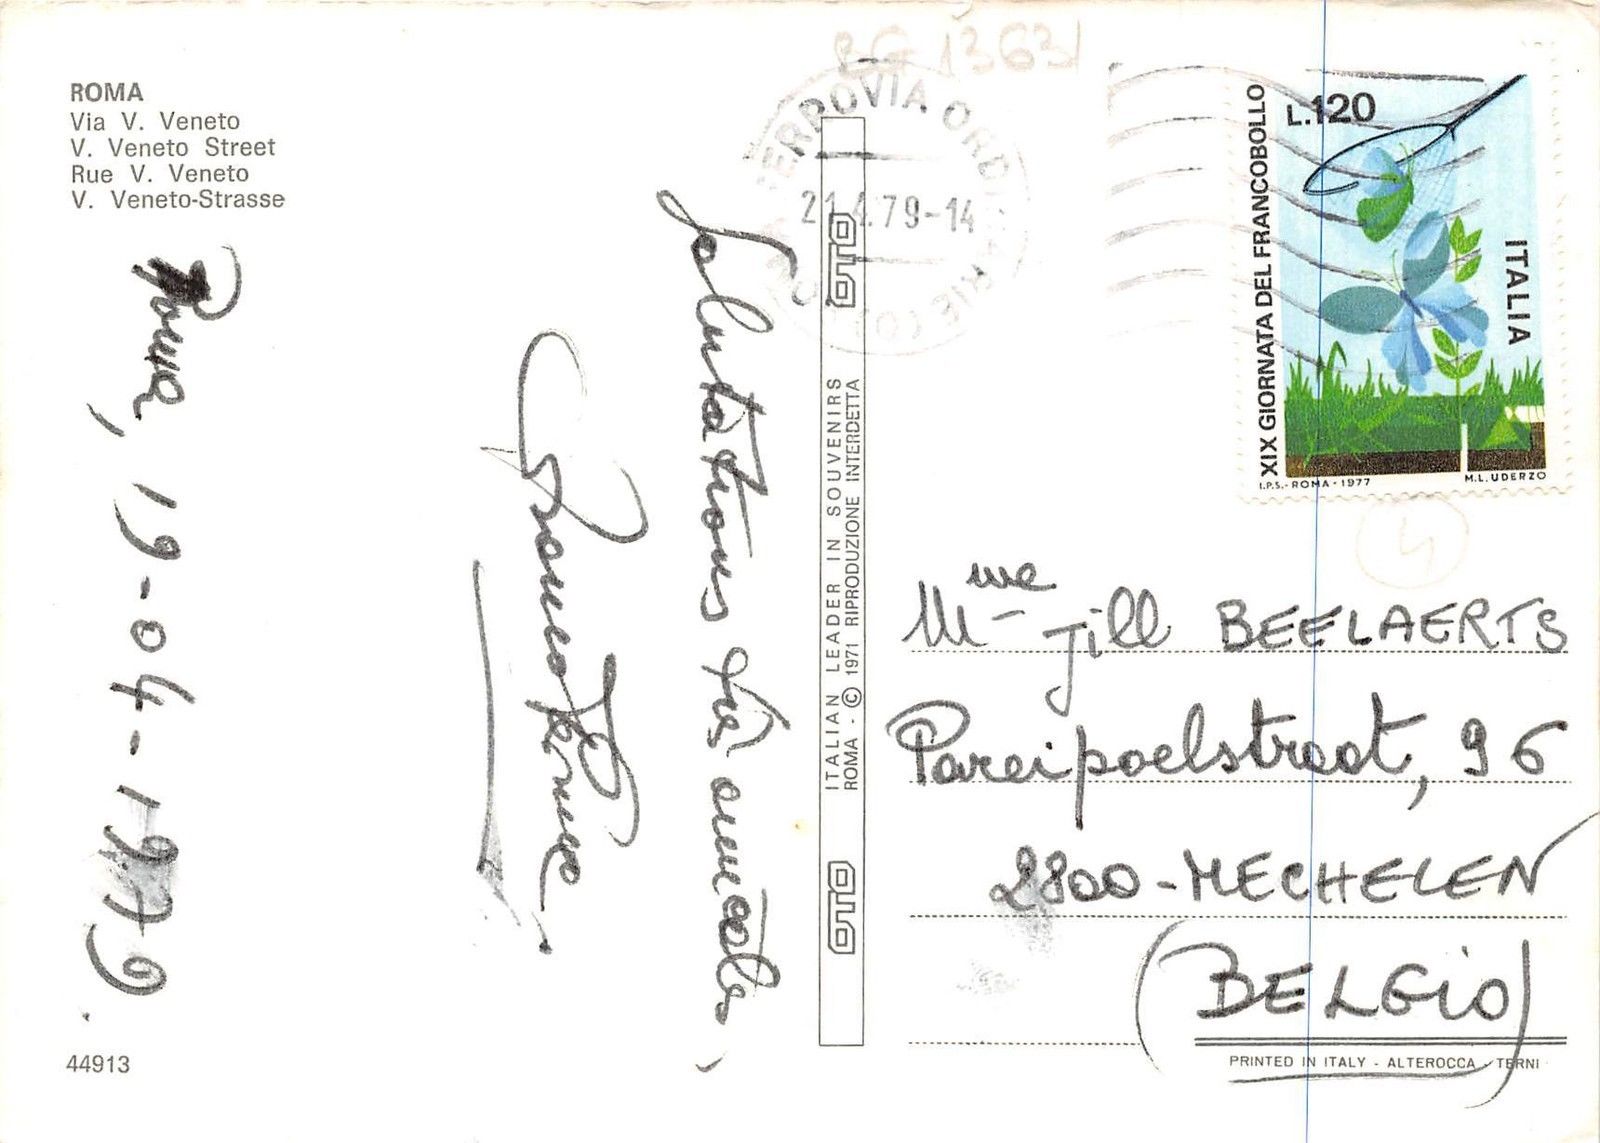 ROMA
Via V. Veneto
V. Veneto Street
Rue V. Veneto
V. Veneto-Strasse
Roma, 19-04-1979.
Salutations très amicales,
44913
OTO
ITALIAN LEADER IN SOUVENIRS
ROMA - © 1971 RIPRODUZIONE INTERDETTA
OTO
BG 13631
FERROVIA ORDINARIE
21.4.79-14
XIX GIORNATA DEL FRANCOBOLLO
L.120
ITALIA
I.P.S.-ROMA-1977
M.L.UDERZO
4
Mme Jill BEELAERTS
Pareipoelstraat, 96
2800-MECHELEN
(BELGIO)
PRINTED IN ITALY - ALTEROCCA - TERNI